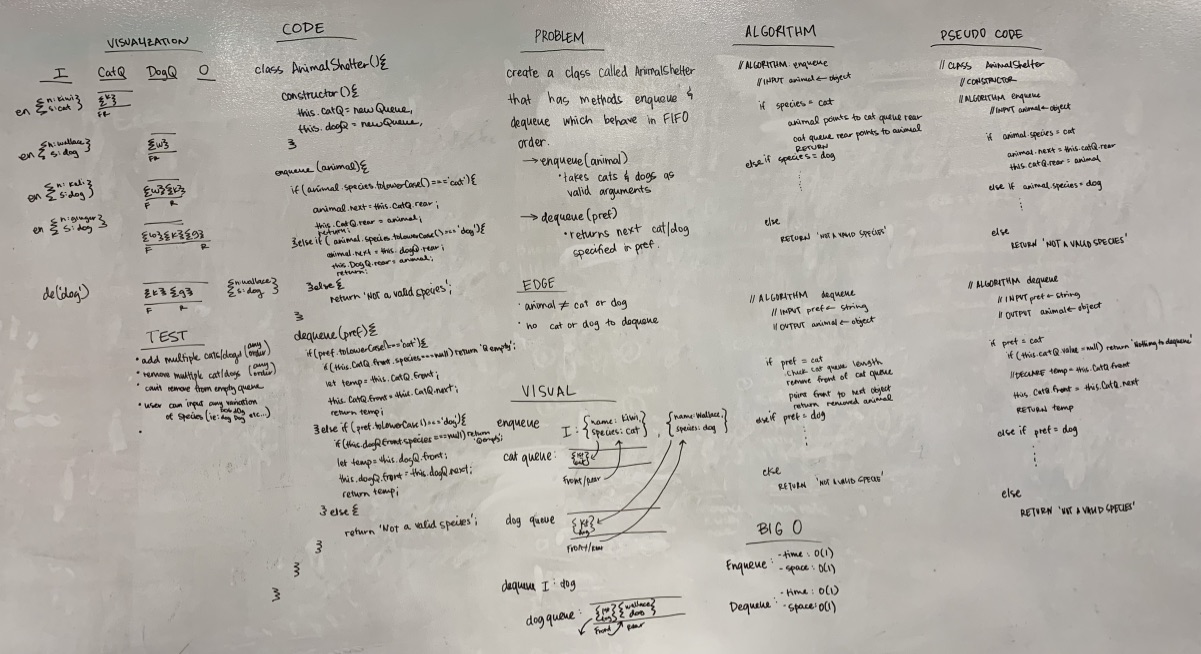 VISUALIZATION
I CatQ DogQ O
en {n:kiwi s:cat} {k}
FR
en {n:wallace s:dog} {w}
FR
en {n:Kali s:dog} {w}{k}
F R
en {n:ginger s:dog} {w}{k}{g}
F R
de('dog') {k}{g} {n:wallace s:dog}
F R
TEST
• add multiple cats/dogs (any order)
• remove multiple cat/dogs (any order)
• can't remove from empty queue
• user can input any variation
of species (ie: dog Dog etc...)
•
CODE
class AnimalShelter(){
constructor(){
this.catQ = new Queue,
this.dogQ = new Queue,
}
enqueue (animal){
if(animal.species.toLowerCase()==='cat'){
animal.next = this.catQ.rear;
this.CatQ.rear = animal;
return;
}else if( animal.species.toLowerCase()==='dog'){
animal.next = this.dogQ.rear;
this.DogQ.rear = animal;
return;
}else{
return 'Not a valid species';
}
dequeue(pref){
if(pref.toLowerCase()==='cat'){
if(this.CatQ.front.species===null) return 'Q empty';
let temp = this.CatQ.front;
this.CatQ.front = this.CatQ.next;
return temp;
}else if (pref.toLowerCase()==='dog'){
if(this.dogQ.front.species===null) return 'Qempty';
let temp = this.dogQ.front;
this.dogQ.front = this.dogQ.next;
return temp;
}else{
return 'Not a valid species';
}
}
}
PROBLEM
create a class called AnimalShelter
that has methods enqueue &
dequeue which behave in FIFO
order.
→ enqueue(animal)
• takes cats & dogs as
valid arguments
→ dequeue(pref)
• returns next cat/dog
specified in pref.
EDGE
· animal ≠ cat or dog
· no cat or dog to dequeue
VISUAL
enqueue I: {name: Kiwi, species: cat}, {name: Wallace, species: dog}
cat queue:
Front/Rear
dog queue
Front/Rear
dequeue I: dog
dog queue: {wallace dog}
Front Rear
ALGORITHM
// ALGORITHM: enqueue
// INPUT animal ← object
if species = cat
animal points to cat queue rear
cat queue rear points to animal
RETURN
else if species = dog
else
RETURN 'NOT A VALID SPECIES'
// ALGORITHM dequeue
// INPUT pref ← string
// OUTPUT animal ← object
if pref = cat
check cat queue length
remove front of cat queue
point front to next object
return removed animal
else if pref = dog
else
RETURN 'NOT A VALID SPECIE'
BIG O
Enqueue: - time: O(1)
- space: O(1)
Dequeue: - time: O(1)
- space: O(1)
PSEUDO CODE
// CLASS AnimalShelter
// CONSTRUCTOR
// ALGORITHM enqueue
// INPUT animal ← object
if animal.species = cat
animal.next = this.catQ.rear
this.catQ.rear = animal
else if animal.species = dog
else
RETURN 'NOT A VALID SPECIES'
// ALGORITHM dequeue
// INPUT pref ← string
// OUTPUT animal ← object
if pref = cat
if (this.catQ.value = null) return 'Nothing to dequeue'
// DECLARE temp = this.CatQ.front
this CatQ.front = this.CatQ.next
RETURN temp
else if pref = dog
else
RETURN 'NOT A VALID SPECIES'